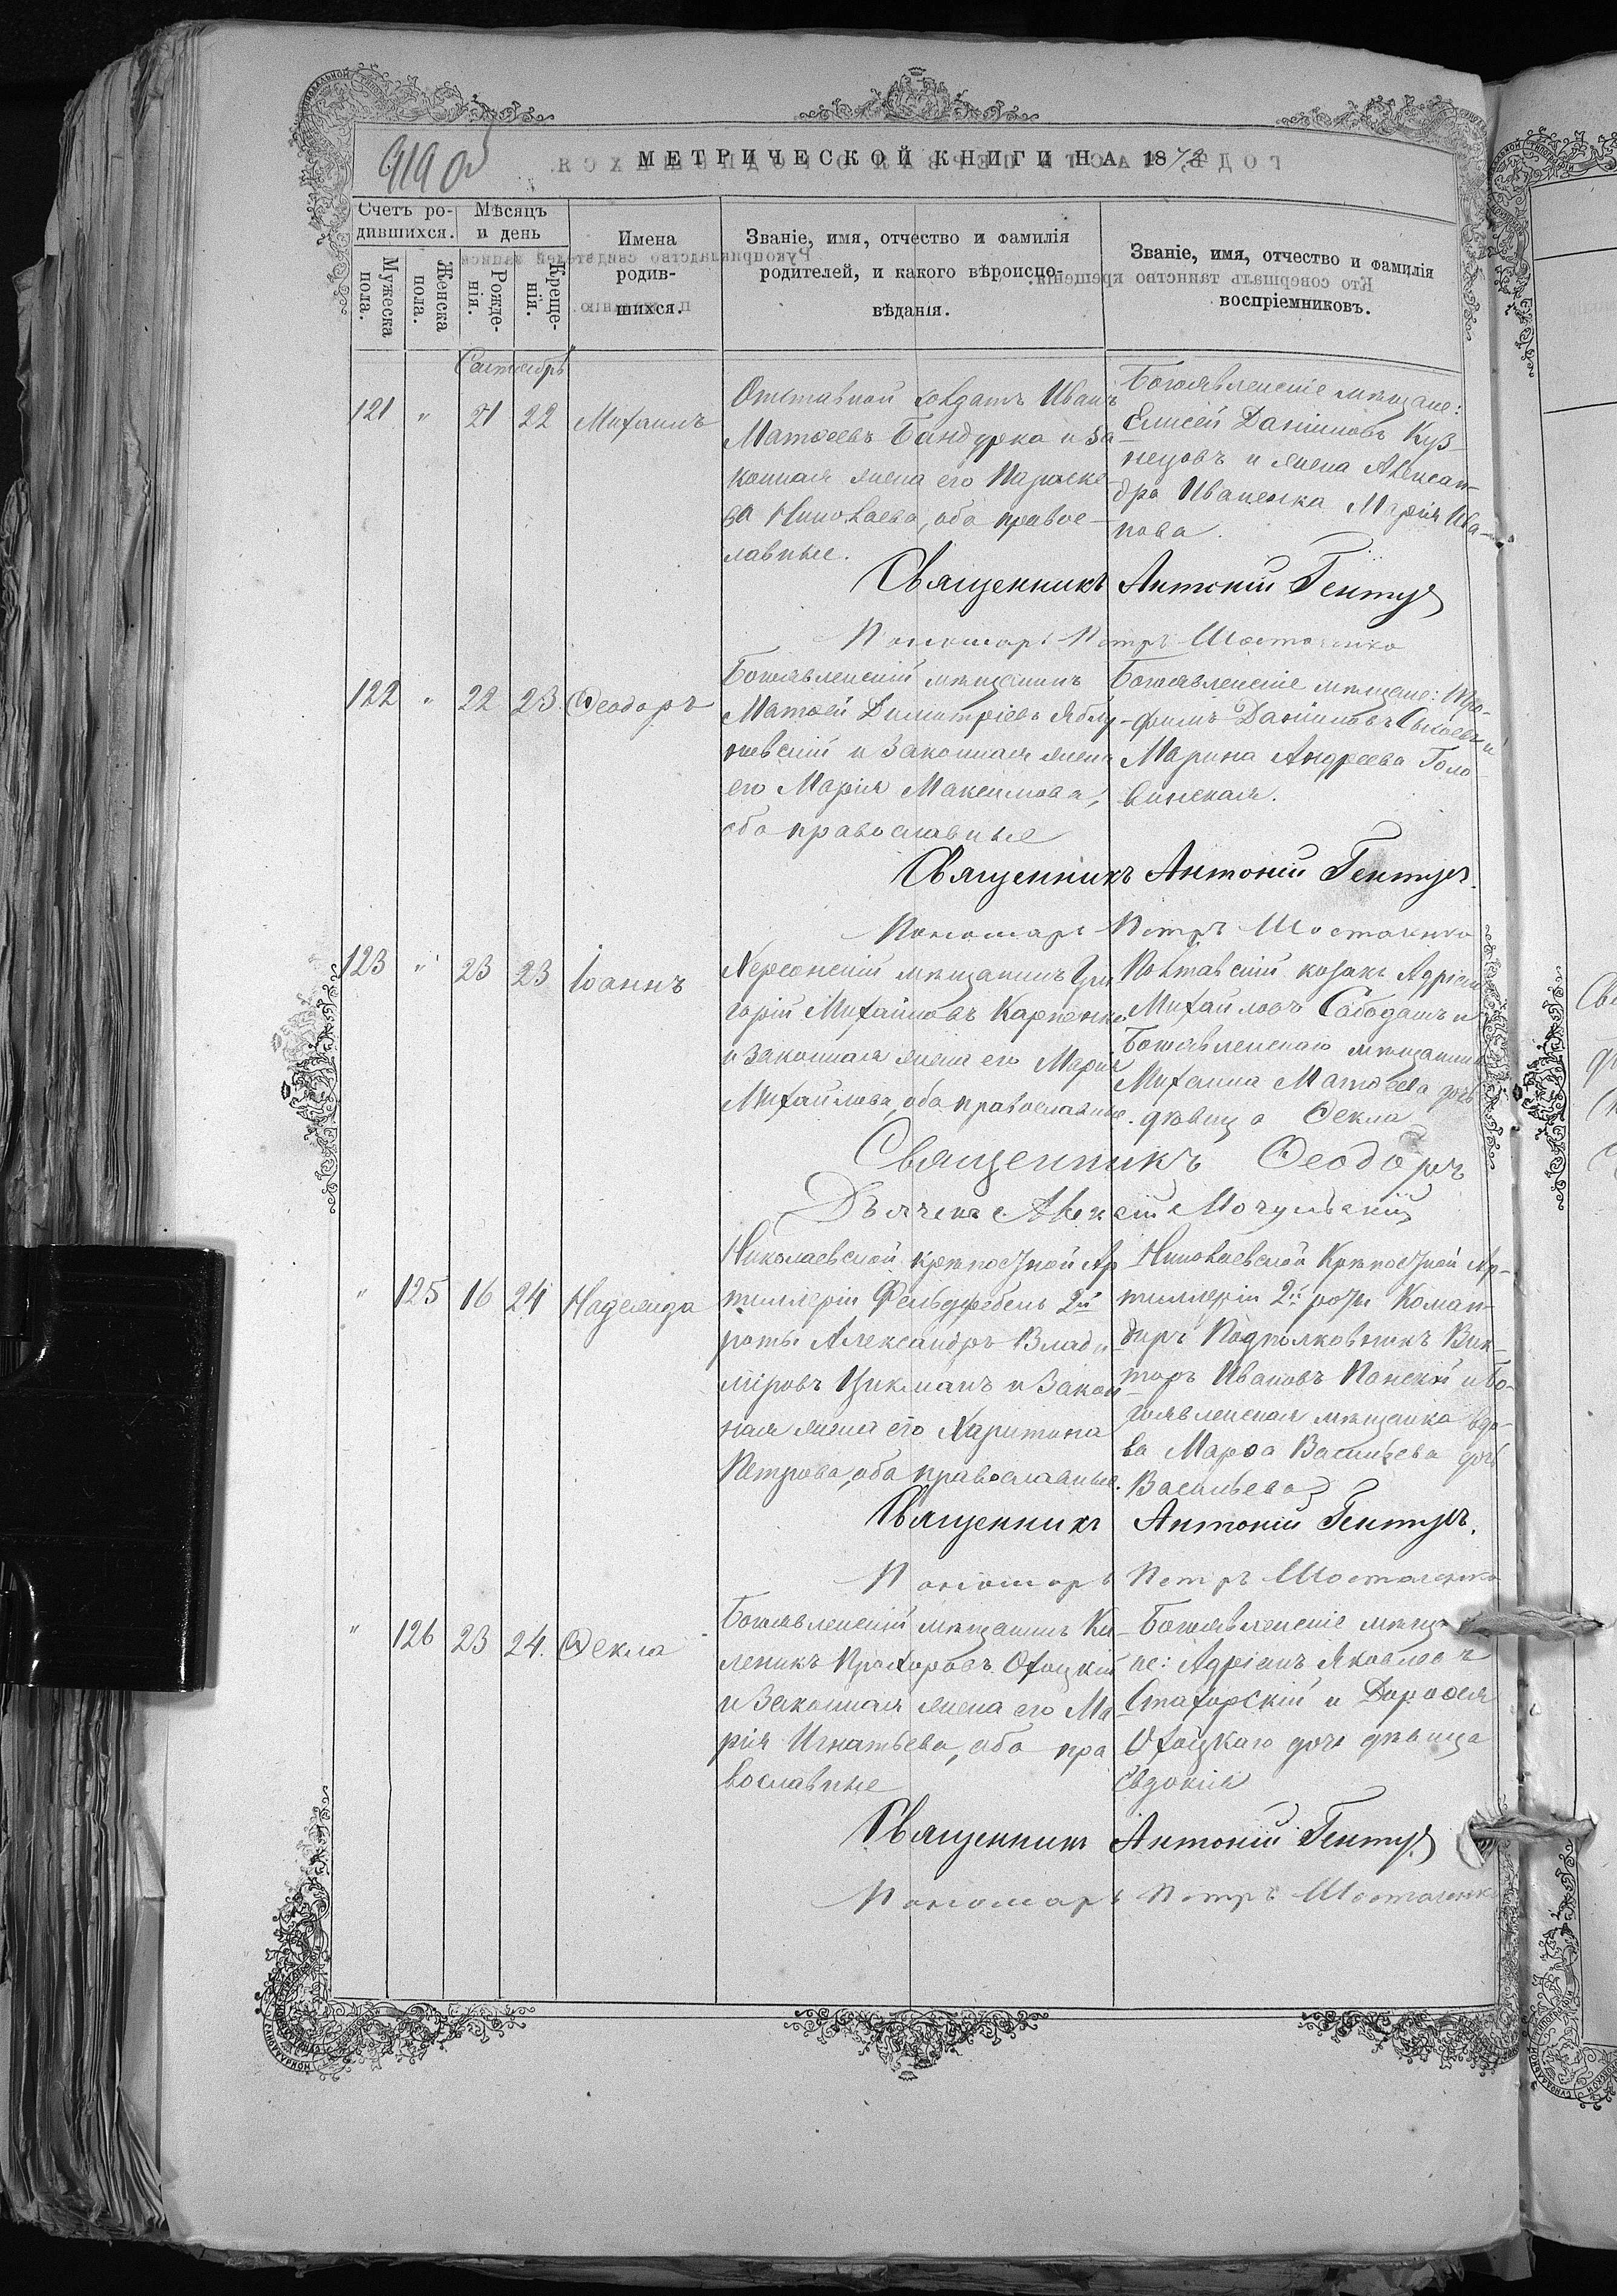 919 об
МЕТРИЧЕСКОЙ КНИГИ НА 187
Счетъ ро-
дившихся.
Мѣсяцъ
и день
Мужеска пола.
Женска пола.
Рожде-
нія.
Креще-
нія.
Имена
родив-
шихся.
Званіе, имя, отчество и фамилія
родителей, и какого вѣроиспо-
вѣданія.
Званіе, имя, отчество и фамилія
воспріемниковъ.
Сентябрь
121 " 21 22 Михаилъ
Отставной солдатъ Иванъ
Матѳеевъ Бандурка и за-
конная жена его Параске-
ва Николаева, оба правос-
лавные.
Богоявленскіе мѣщане:
Елисей Даніиловъ Куз-
нецовъ и жена Алексан-
дра Иваненка Марія Ива-
нова.
Священникъ Антоній Гентуя
Пономарь Петръ Шостаченко
122 " 22 23 Ѳеодоръ
Богоявленскій мѣщанинъ
Матѳей Димитріевъ Яблу-
невскій и законная жена
его Марія Максимова,
оба православные
Богоявленскіе мѣщане: Тро-
фимъ Даніиловъ и
Марина Андреева Голо-
винская.
Священникъ Антоній Гентуя.
Пономарь Петръ Шостаченко
123 " 23 23 Іоаннъ
Херсонскій мѣщанинъ Гри
горій Михайловъ Карпенко
и законная жена его Марія
Михайлова, оба православные.
Полтавскій козакъ Адріанъ
Михайловъ Сободашъ и
Богоявленскаго мѣщанина
Михаила Матѳеева дочь
дѣвица Ѳекла
Священникъ Ѳеодоръ
Дьячекъ Алексій Мочульскій
" 125 16 24 Надежда
Николаевской крѣпостной Ар
тиллеріи Фельдфебель 2й
роты Александръ Влади
міровъ Цикманъ и закон
ная жена его Харитина
Петрова, оба православные.
Николаевской Крѣпостной Ар-
тиллеріи 2й роты Коман-
диръ Подполковникъ Вик-
торъ Ивановъ Понскій и Бо-
гоявленская мѣщанка вдо-
ва Марѳа Васильева дочь
Васильева
Священникъ Антоній Гентуя.
Пономарь Петръ Шостаченко
" 126 23 24. Ѳекла
Богоявленскій мѣщанинъ Ка-
леникъ Прохоровъ Охоцкій
и законная жена его Ма
рія Игнатьева, оба пра
вославные
Богоявленскіе мѣща
не: Адріанъ Яковлевъ
Стахорскій и Дороѳея
Охоцкаго дочь дѣвица
Евдокія
Священникъ Антоній Гентуя
Пономарь Петръ Шостаченко